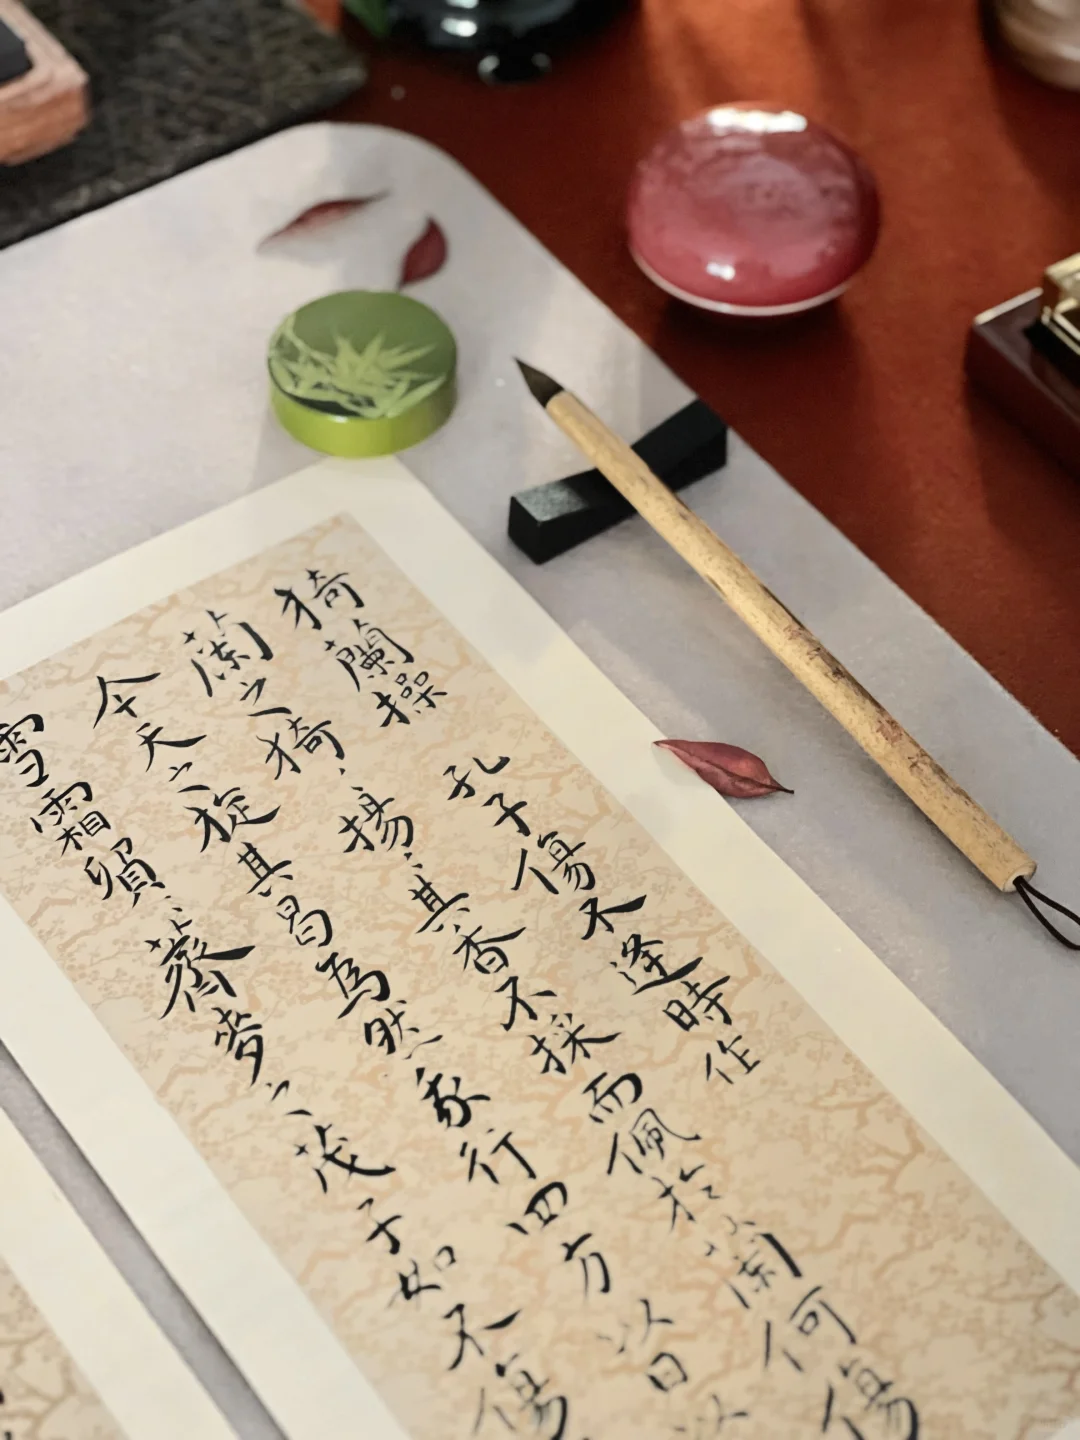 猗蘭操 孔子傷不逢時作
蘭之猗〻揚〻其香不採而佩於蘭何傷
今天之旋其曷為然我行四方以日以
雪霜貿〻薺麥之茂子如不傷